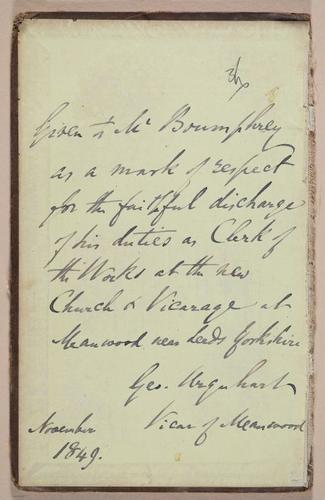 3/-
Given to Mr Boumphrey
as a mark of respect
for the faithful discharge
of his duties as Clerk of
the Works at the new
Church & Vicarage at
Meanwood near Leeds Yorkshire
Geo. Urquhart
Vicar of Meanwood
November
1849.